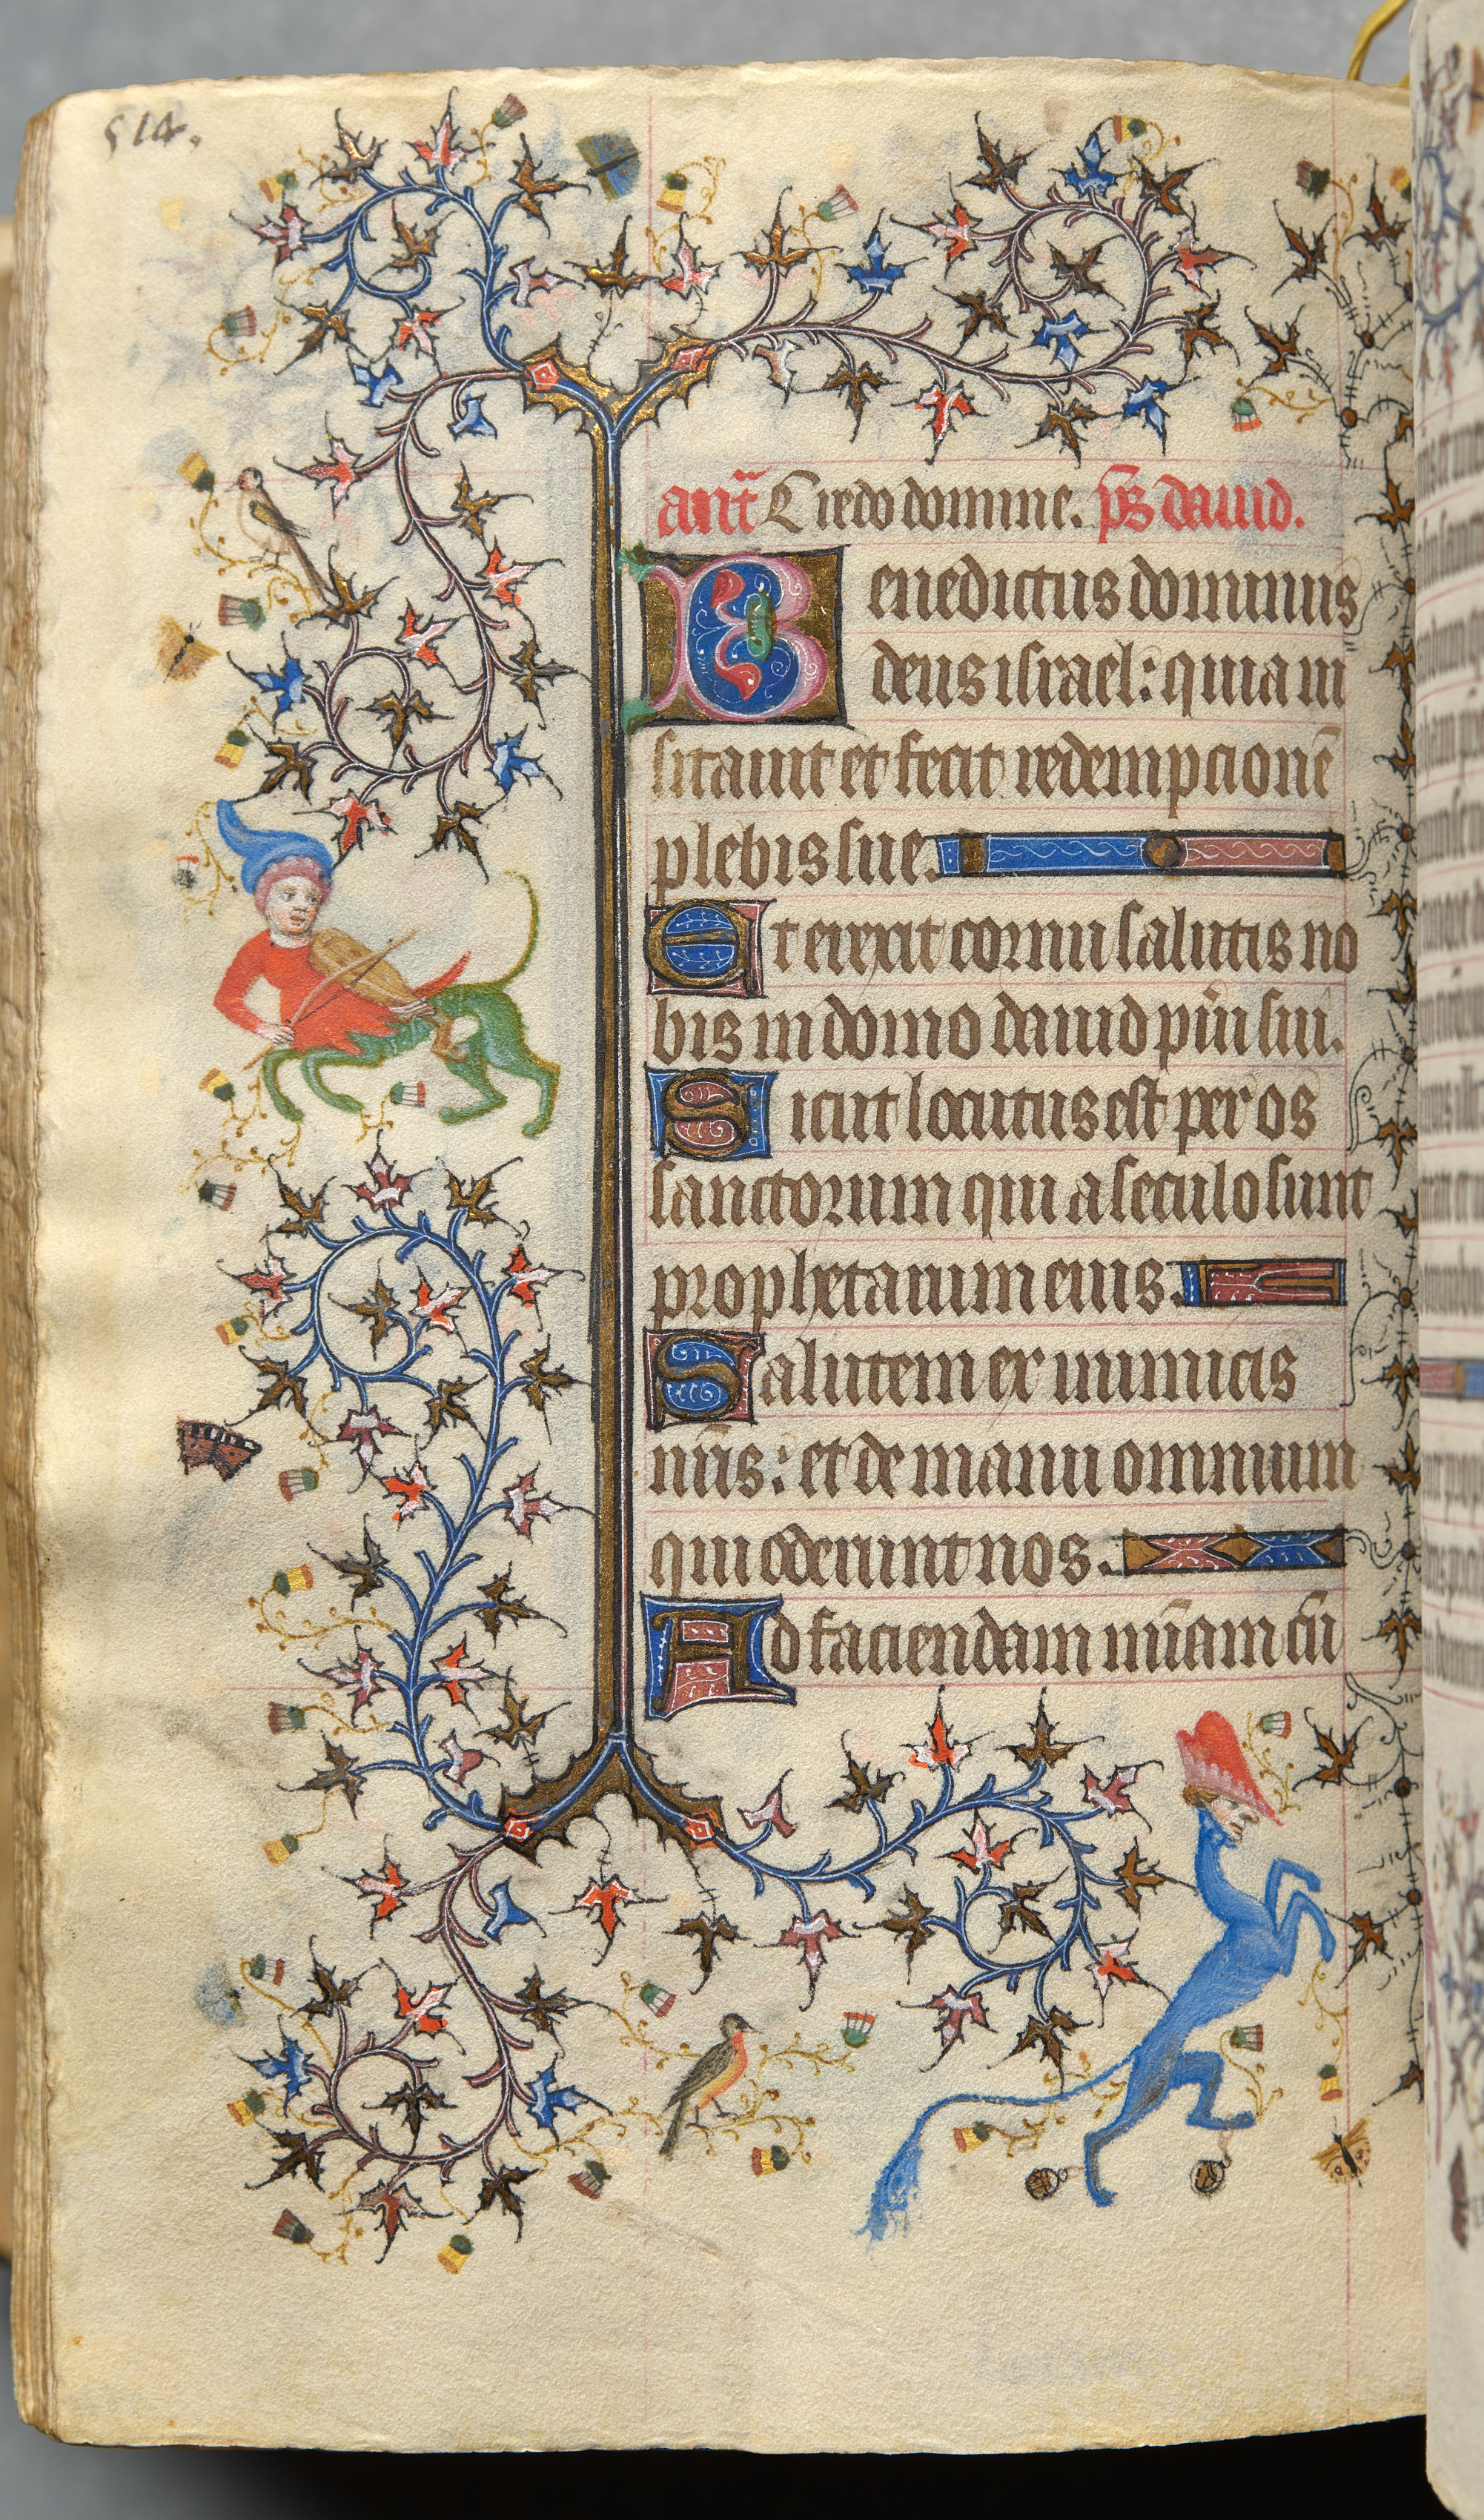 514.
anť Credo domine. p̄s dauid.
Benedictus dominus
deus israel: quia ui
sitauit et fecit redempcionē
plebis sue.
Et erexit cornu salutis no
bis in domo dauid pūi sui.
Sicut locutus est per os
sanctorum qui a seculo sunt
prophetarum eius.
Salutem ex inimicis
nr̄is: et de manu omnium
qui oderunt nos.
Ad faciendam mīam cū